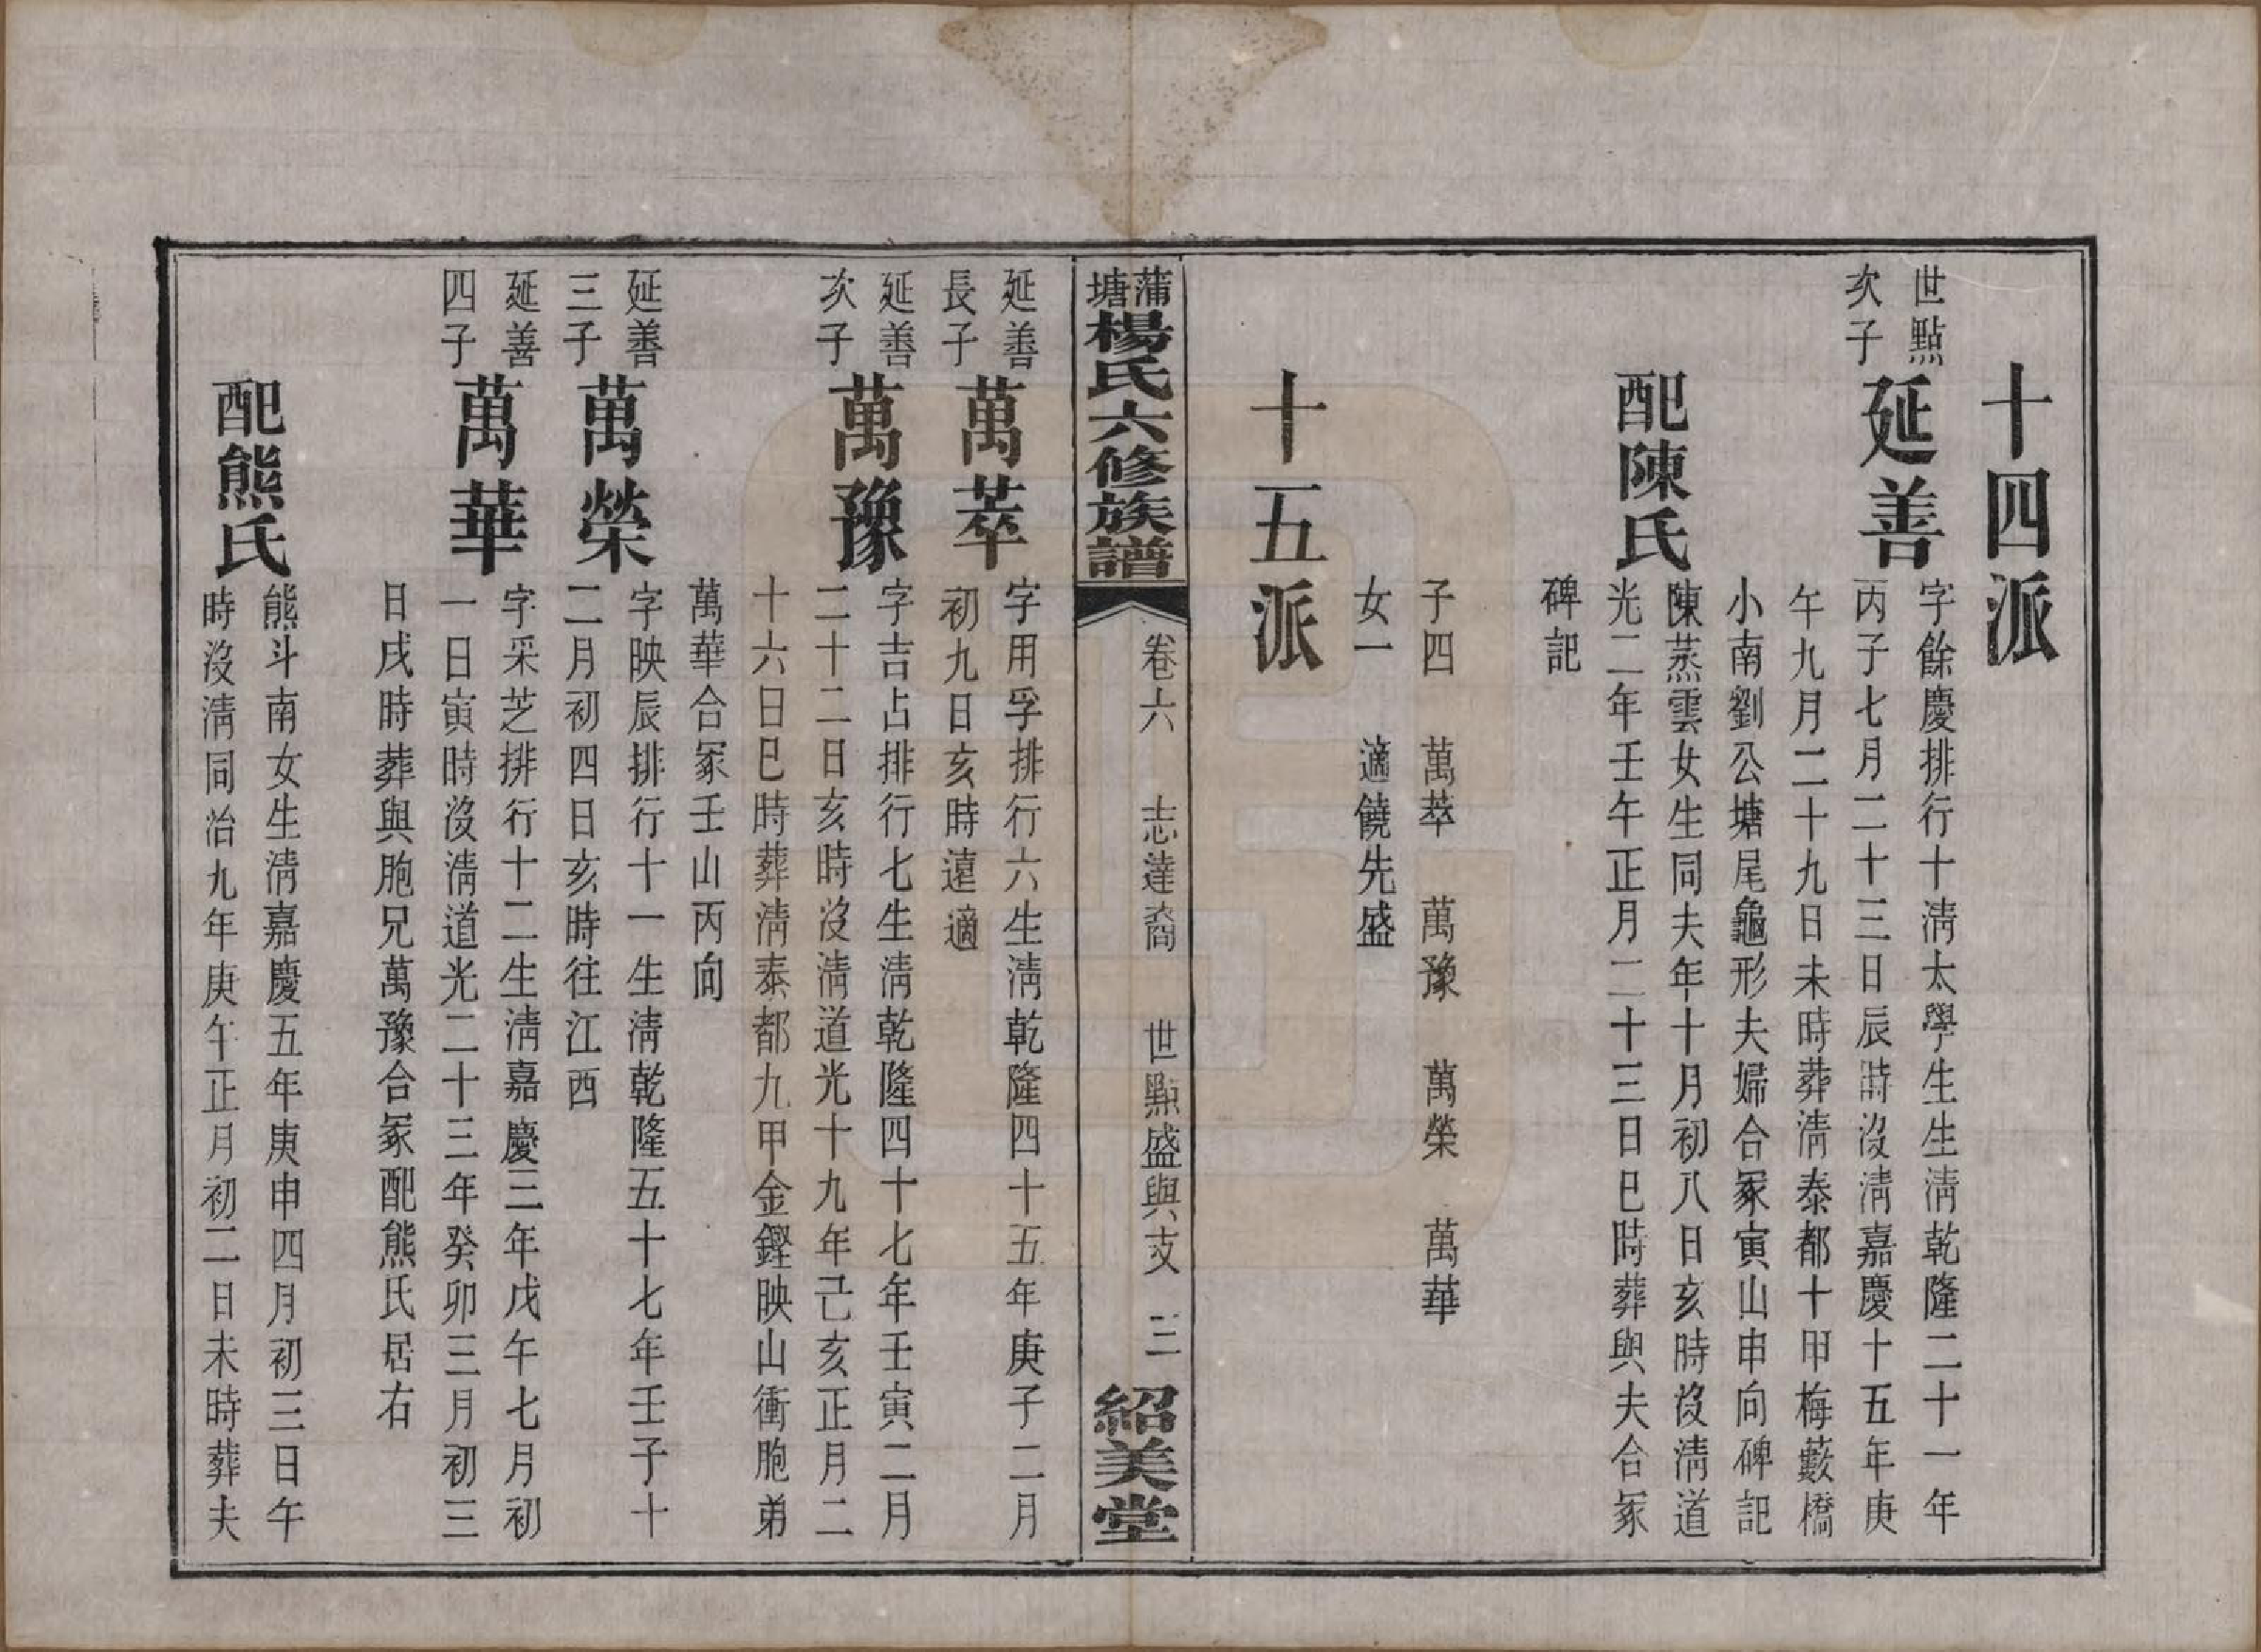 十四派
世點
次子
延善
字餘慶排行十淸太學生生淸乾隆二十一年
丙子七月二十三日辰時沒淸嘉慶十五年庚
午九月二十九日未時葬淸泰都十甲梅藪橋
小南劉公塘尾龜形夫婦合冢寅山申向碑記
配陳氏
陳蒸雲女生同夫年十月初八日亥時沒淸道
光二年壬午正月二十三日巳時葬與夫合冢
碑記
子四 萬萃 萬豫 萬榮 萬華
女一 適饒先盛
十五派
蒲塘楊氏六修族譜
卷六 志達裔 世點盛與支 三
紹美堂
延善
長子
萬萃
字用孚排行六生淸乾隆四十五年庚子二月
初九日亥時遠適
延善
次子
萬豫
字吉占排行七生淸乾隆四十七年壬寅二月
二十二日亥時沒淸道光十九年己亥正月二
十六日巳時葬淸泰都九甲金鏗映山衝胞弟
萬華合冢壬山丙向
延善
三子
萬榮
字映辰排行十一生淸乾隆五十七年壬子十
二月初四日亥時往江西
延善
四子
萬華
字采芝排行十二生淸嘉慶三年戊午七月初
一日寅時沒淸道光二十三年癸卯三月初三
日戌時葬與胞兄萬豫合冢配熊氏居右
配熊氏
熊斗南女生淸嘉慶五年庚申四月初三日午
時沒淸同治九年庚午正月初二日未時葬夫